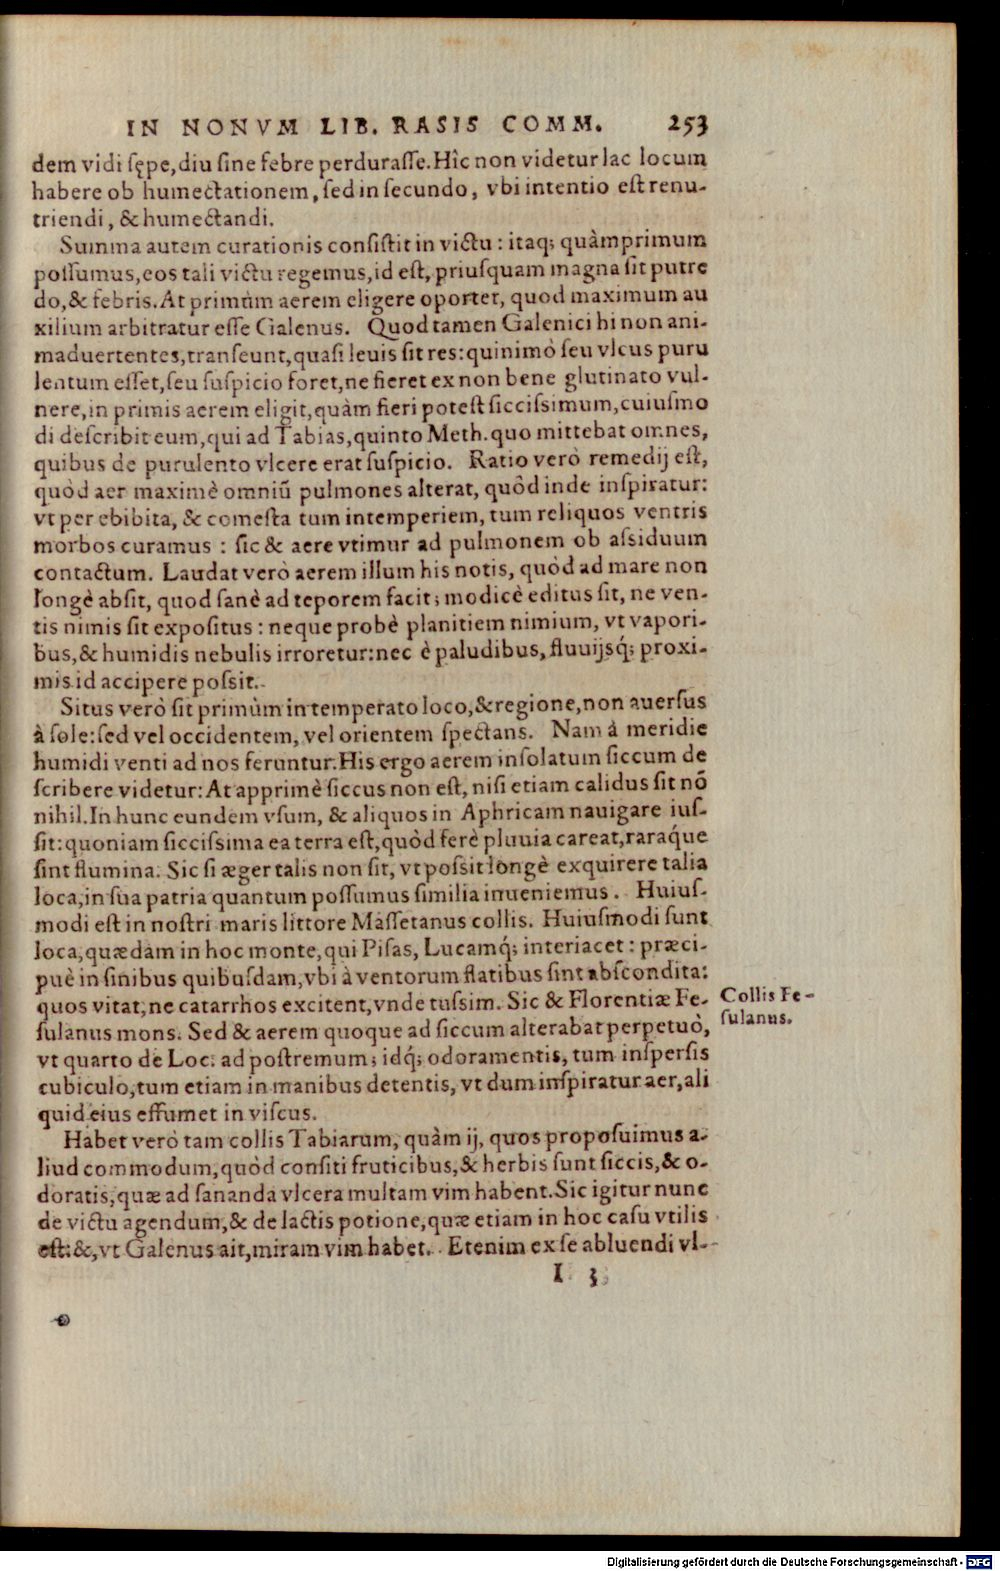 IN NONVM LIB. RASIS COMM. 253
dem vidi sępe, diu sine febre perdurasse. Hîc non videtur lac locum
habere ob humectationem, sed in secundo, vbi intentio est renu-
triendi, & humectandi.
Summa autem curationis consistit in victu: itaq; quàmprimum
possumus, eos tali victu regemus, id est, priusquam magna sit putre
do, & febris. At primùm aerem eligere oportet, quod maximum au
xilium arbitratur esse Galenus. Quod tamen Galenici hi non ani-
maduertentes, transeunt, quasi leuis sit res: quinimò seu vlcus puru
lentum esset, seu suspicio foret, ne fieret ex non bene glutinato vul-
nere, in primis aerem eligit, quàm fieri potest siccissimum, cuiusmo
di describit eum, qui ad Tabias, quinto Meth. quo mittebat omnes,
quibus de purulento vlcere erat suspicio. Ratio verò remedij est,
quòd aer maximè omniũ pulmones alterat, quòd inde inspiratur:
vt per ebibita, & comesta tum intemperiem, tum reliquos ventris
morbos curamus: sic & aere vtimur ad pulmonem ob assiduum
contactum. Laudat verò aerem illum his notis, quòd ad mare non
longè absit, quod sanè ad teporem facit; modicè editus sit, ne ven-
tis nimis sit expositus: neque probè planitiem nimium, vt vapori-
bus, & humidis nebulis irroretur: nec è paludibus, fluuijsq́; proxi-
mis id accipere possit.
Situs verò sit primùm in temperato loco, & regione, non auersus
à sole: sed vel occidentem, vel orientem spectans. Nam à meridie
humidi venti ad nos feruntur. His ergo aerem insolatum siccum de
scribere videtur: At apprimè siccus non est, nisi etiam calidus sit nõ
nihil. In hunc eundem vsum, & aliquos in Aphricam nauigare ius-
sit: quoniam siccissima ea terra est, quòd ferè pluuia careat, raraq́ue
sint flumina. Sic si æger talis non sit, vt possit longè exquirere talia
loca, in sua patria quantum possumus similia inueniemus. Huius-
modi est in nostri maris littore Massetanus collis. Huiusmodi sunt
loca, quædam in hoc monte, qui Pisas, Lucamq́; interiacet: præci-
puè in sinibus quibusdam, vbi à ventorum flatibus sint abscondita:
quos vitat, ne catarrhos excitent, vnde tussim. Sic & Florentiæ Fe-
sulanus mons. Sed & aerem quoque ad siccum alterabat perpetuò,
vt quarto de Loc. ad postremum; idq́; odoramentis, tum inspersis
cubiculo, tum etiam in manibus detentis, vt dum inspiratur aer, ali
quid eius effumet in viscus.
Habet verò tam collis Tabiarum, quàm ij, quos proposuimus a-
liud commodum, quòd consiti fruticibus, & herbis sunt siccis, & o-
doratis, quæ ad sananda vlcera multam vim habent. Sic igitur nunc
de victu agendum, & de lactis potione, quæ etiam in hoc casu vtilis
est: &, vt Galenus ait, miram vim habet. Etenim ex se abluendi vl-
I 3
Collis Fe-
sulanus.
Digitalisierung gefördert durch die Deutsche Forschungsgemeinschaft - DFG